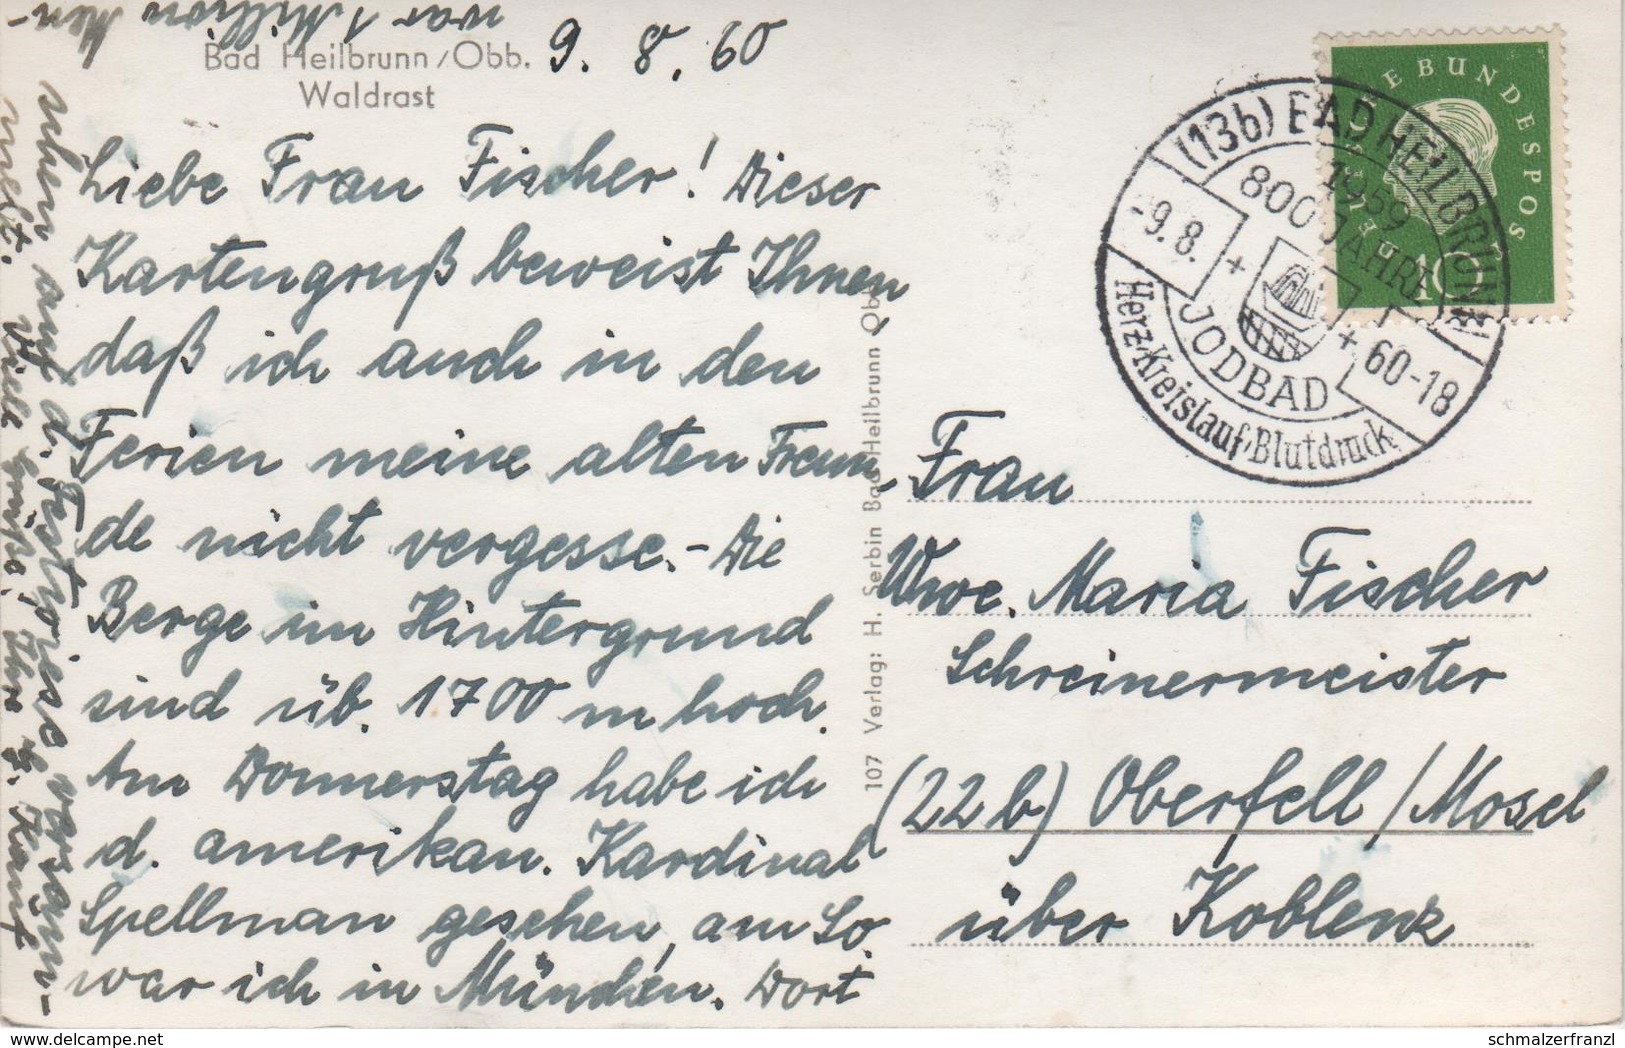 Bad Heilbrunn/Obb.
Waldrast
9. 8. 60
Liebe Frau Fischer! Dieser
Kartengruß beweist Ihnen,
daß ich auch in den
Ferien meine alten Freun-
de nicht vergesse. - Die
Berge im Hintergrund
sind üb. 1700 m hoch.
Am Donnerstag habe ich
d. amerikan. Kardinal
Spellman gesehen, am So.
war ich in München. Dort
war 1 Million Men-
schen auf d. Festwiese versamm-
melt. Viele Grüße, Ihre
107 Verlag: H. Serbin Bad Heilbrunn Obb.
DEUTSCHE BUNDESPOST
10
(13b) BAD HEILBRUNN
1959
800 JAHRE
-9.8.
60-18
JODBAD
Herz-Kreislauf-Blutdruck
Frau
Wwe. Maria Fischer
Schreinermeister
(22b) Oberfell/Mosel
über Koblenz
www.delcampe.net
schmalzerfranzl